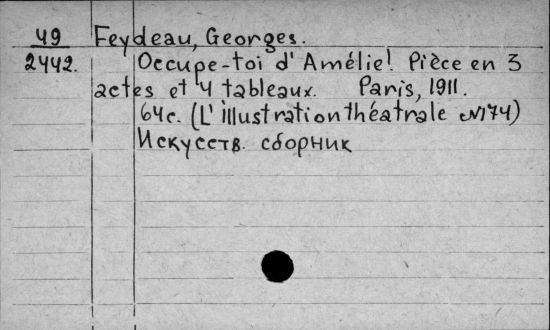 49 Feydeau, Georges.
2442. Occupe-toi d'Amélie! Pièce en 3
actes et 4 tableaux. Paris, 1911.
64c. (L'illustration théatrale №174)
Искусств. сборник